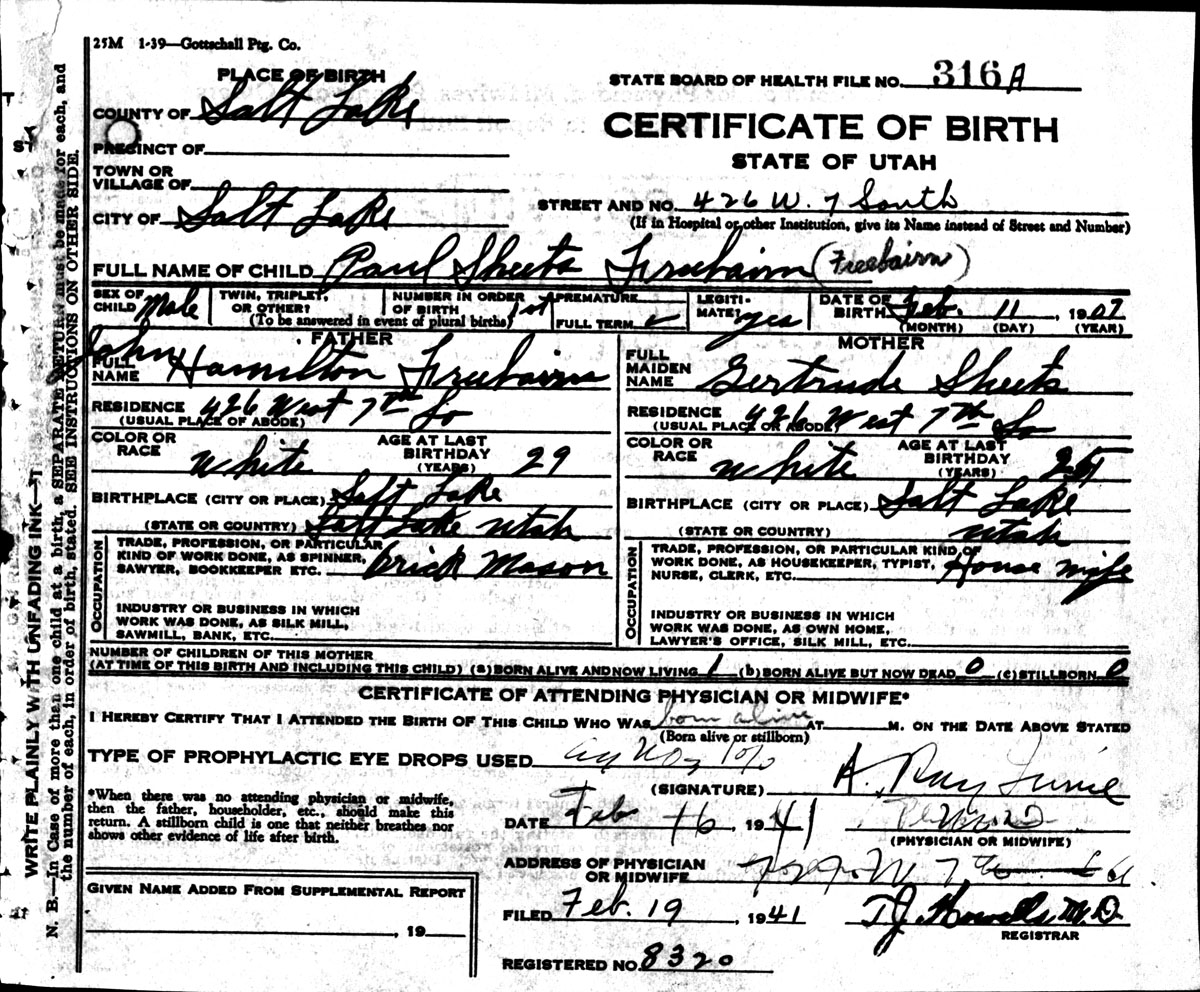 25M 1-39—Gottschall Ptg. Co.
PLACE OF BIRTH
STATE BOARD OF HEALTH FILE NO. 316A
COUNTY OF Salt Lake
CERTIFICATE OF BIRTH
PRECINCT OF
STATE OF UTAH
TOWN OR
VILLAGE OF
STREET AND NO. 426 W. 7 South
CITY OF Salt Lake
(If in Hospital or other Institution, give its Name instead of Street and Number)
FULL NAME OF CHILD Paul Sheets Freebairn (Freebairn)
SEX OF CHILD Male
TWIN, TRIPLET, OR OTHER?
NUMBER IN ORDER OF BIRTH 1st
(To be answered in event of plural births)
PREMATURE
FULL TERM ✓
LEGITI-MATE? yes
DATE OF BIRTH Feb. 11, 1907
(MONTH) (DAY) (YEAR)
FATHER
FULL NAME John Hamilton Freebairn
RESIDENCE 426 West 7th So
(USUAL PLACE OF ABODE)
COLOR OR RACE White
AGE AT LAST BIRTHDAY (YEARS) 29
BIRTHPLACE (CITY OR PLACE) Salt Lake
(STATE OR COUNTRY) Salt Lake Utah
OCCUPATION
TRADE, PROFESSION, OR PARTICULAR
KIND OF WORK DONE, AS SPINNER,
SAWYER, BOOKKEEPER ETC. brick Mason
INDUSTRY OR BUSINESS IN WHICH
WORK WAS DONE, AS SILK MILL,
SAWMILL, BANK, ETC.
MOTHER
FULL MAIDEN NAME Gertrude Sheets
RESIDENCE 426 West 7th So
(USUAL PLACE OR ABODE)
COLOR OR RACE White
AGE AT LAST BIRTHDAY (YEARS)
BIRTHPLACE (CITY OR PLACE) Salt Lake
(STATE OR COUNTRY) Utah
OCCUPATION
TRADE, PROFESSION, OR PARTICULAR KIND OF
WORK DONE, AS HOUSEKEEPER, TYPIST,
NURSE, CLERK, ETC. House wife
INDUSTRY OR BUSINESS IN WHICH
WORK WAS DONE, AS OWN HOME,
LAWYER'S OFFICE, SILK MILL, ETC.
NUMBER OF CHILDREN OF THIS MOTHER
(AT TIME OF THIS BIRTH AND INCLUDING THIS CHILD) (a) BORN ALIVE AND NOW LIVING 1 (b) BORN ALIVE BUT NOW DEAD 0 (c) STILLBORN 0
CERTIFICATE OF ATTENDING PHYSICIAN OR MIDWIFE*
I HEREBY CERTIFY THAT I ATTENDED THE BIRTH OF THIS CHILD WHO WAS born alive AT M. ON THE DATE ABOVE STATED
(Born alive or stillborn)
TYPE OF PROPHYLACTIC EYE DROPS USED
(SIGNATURE) A. Ray
*When there was no attending physician or midwife,
then the father, householder, etc., should make this
return. A stillborn child is one that neither breathes nor
shows other evidence of life after birth.
DATE Feb 16, 1941
(PHYSICIAN OR MIDWIFE)
ADDRESS OF PHYSICIAN
OR MIDWIFE
GIVEN NAME ADDED FROM SUPPLEMENTAL REPORT
, 19
FILED Feb. 19, 1941 T J Howells M.D.
REGISTRAR
REGISTERED NO. 8320
WRITE PLAINLY WITH UNFADING INK—
N. B.—In Case of more than one child at a birth, a SEPARATE RETURN must be made for each, and
the number of each, in order of birth, stated. SEE INSTRUCTIONS ON OTHER SIDE.